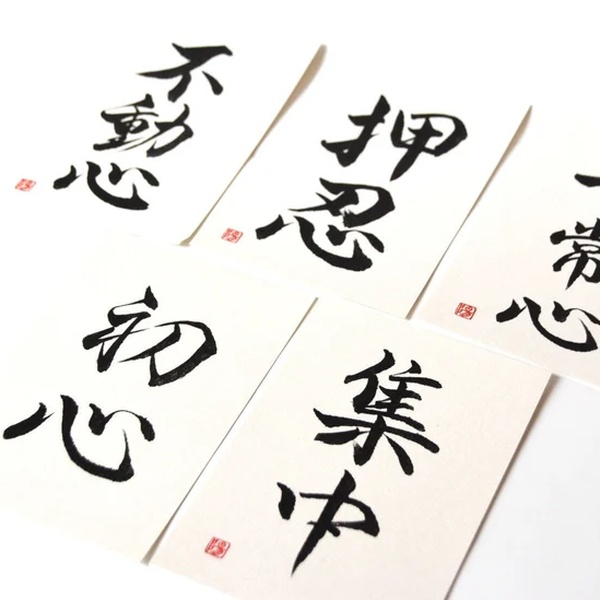 不動心
押忍
常心
初心
集中